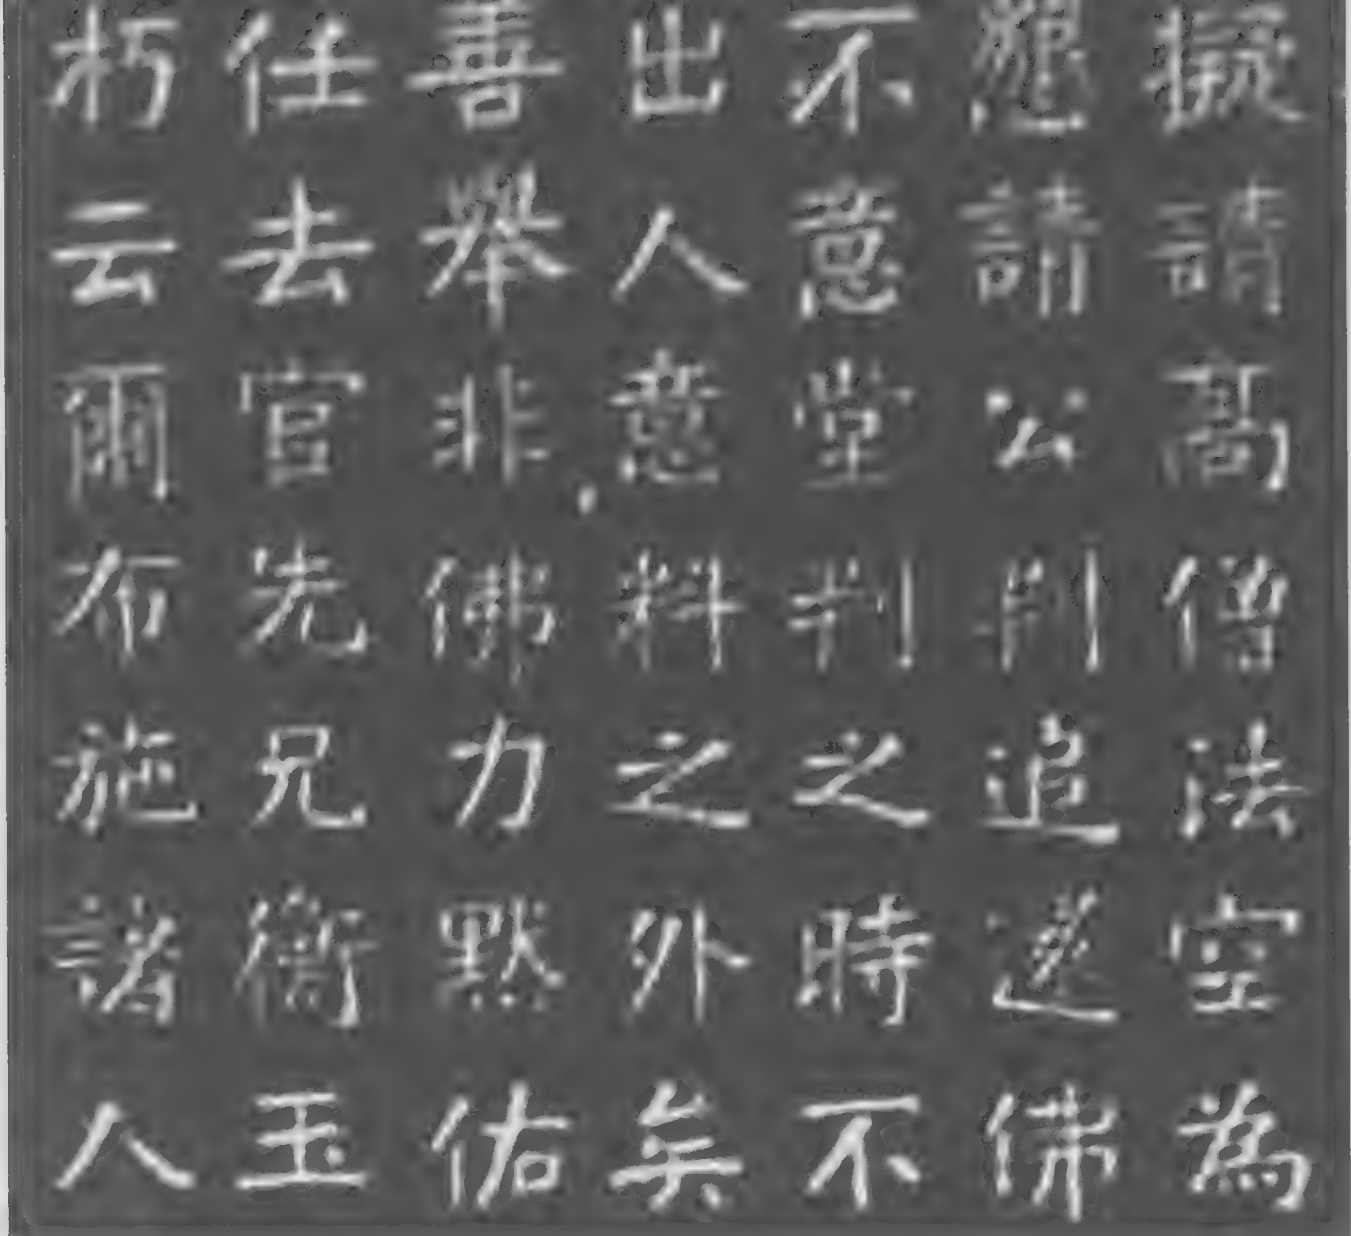 擬請高僧法空為
懇請公判追述佛
不意堂判之時不
出人意料之外矣
善舉非佛力默佑
任去官先兄衡玉
朽云爾布施諸人